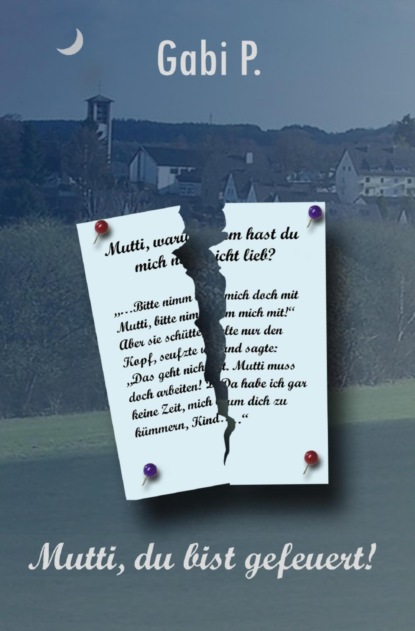 Gabi P.
Mutti, waru m hast du
mich n icht lieb?
„…Bitte nimm mich doch mit
Mutti, bitte nim m mich mit!“
Aber sie schütte lte nur den
Kopf, seufzte u nd sagte:
„Das geht nich t. Mutti muss
doch arbeiten! Da habe ich gar
keine Zeit, mich um dich zu
kümmern, Kind…..“
Mutti, du bist gefeuert!